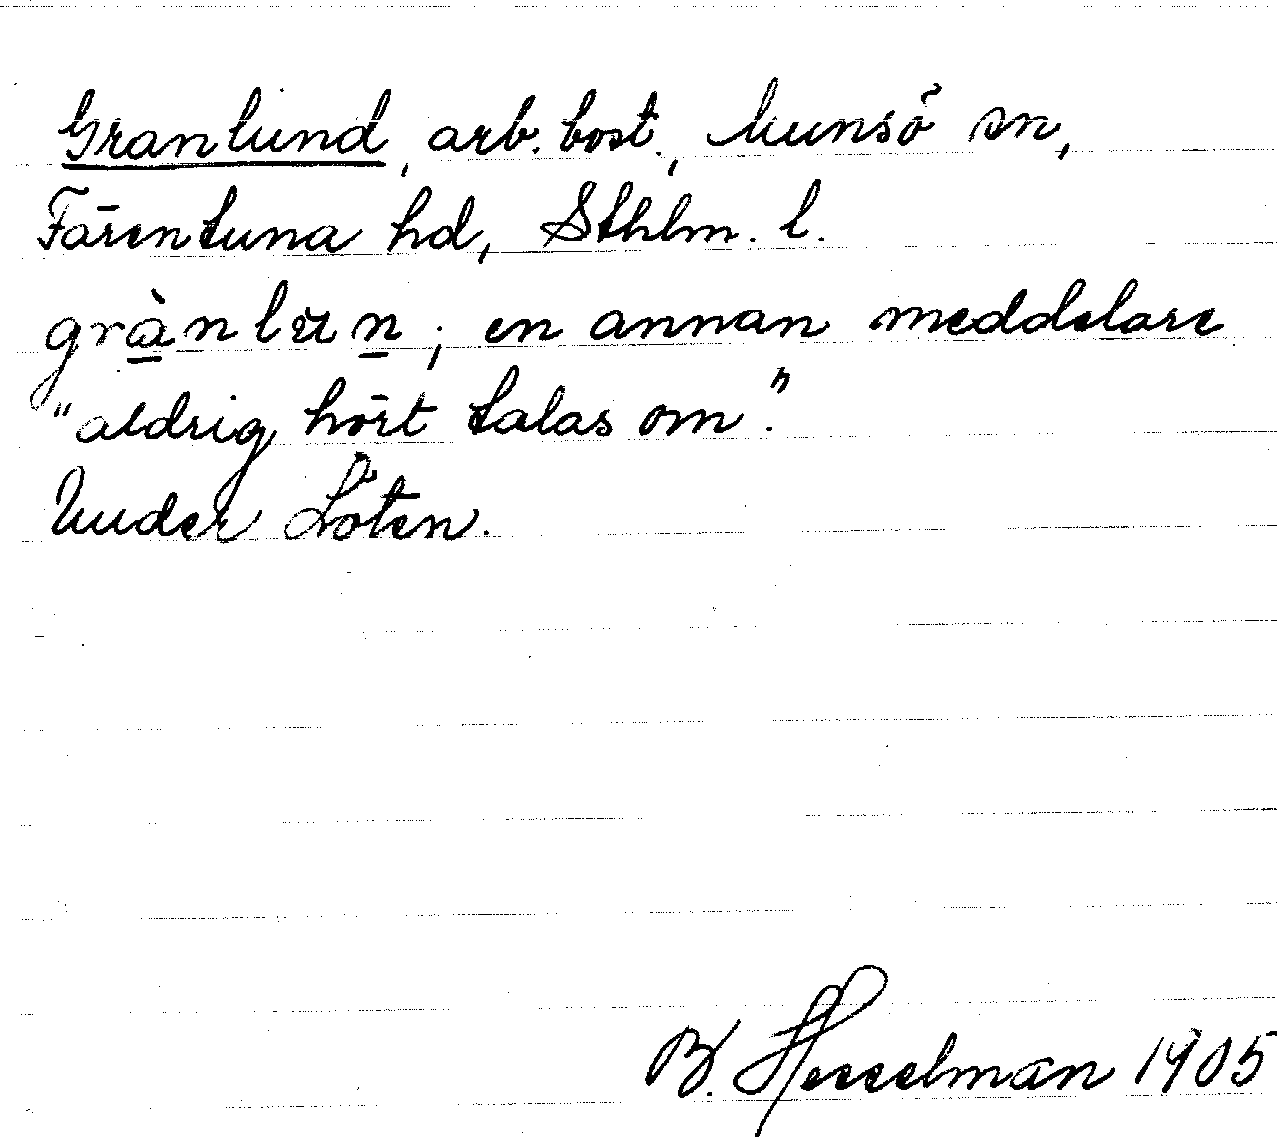 Granlund, arb. bost., Munsö sn,
Färentuna hd, Sthlm. l.
grànlun; en annan meddelare
"aldrig hört talas om".
Under Löten.
B. Hesselman 1905